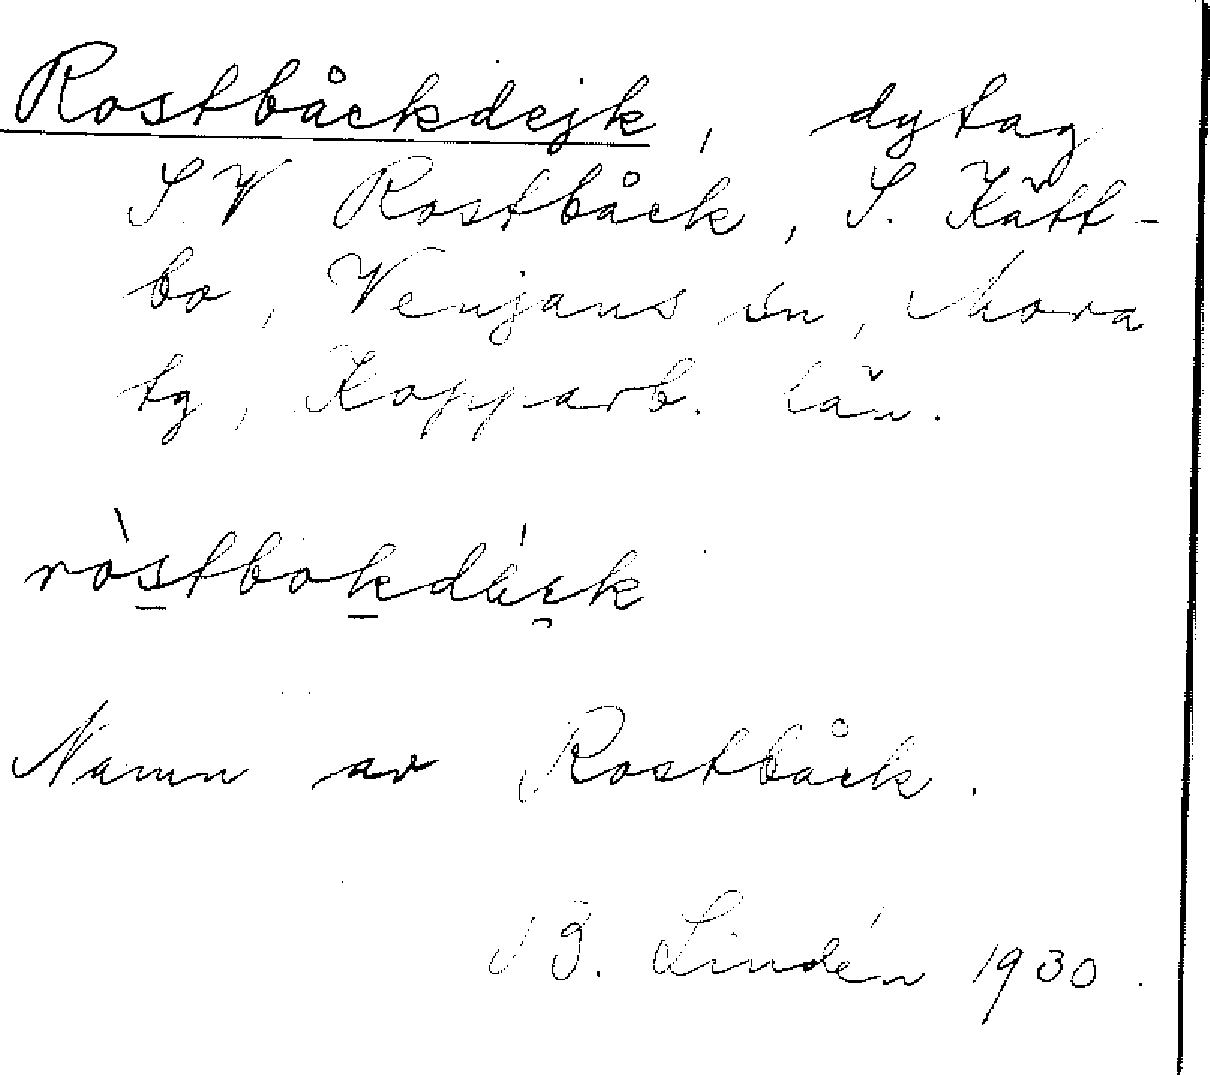 Rostbåckdejk, dytag
S.V Rostbåck, S. Kätt-
bo, Venjans sn, Mora
tg, Kopparb. län.
Namn av Rostbåck.
B. Lindén 1930.